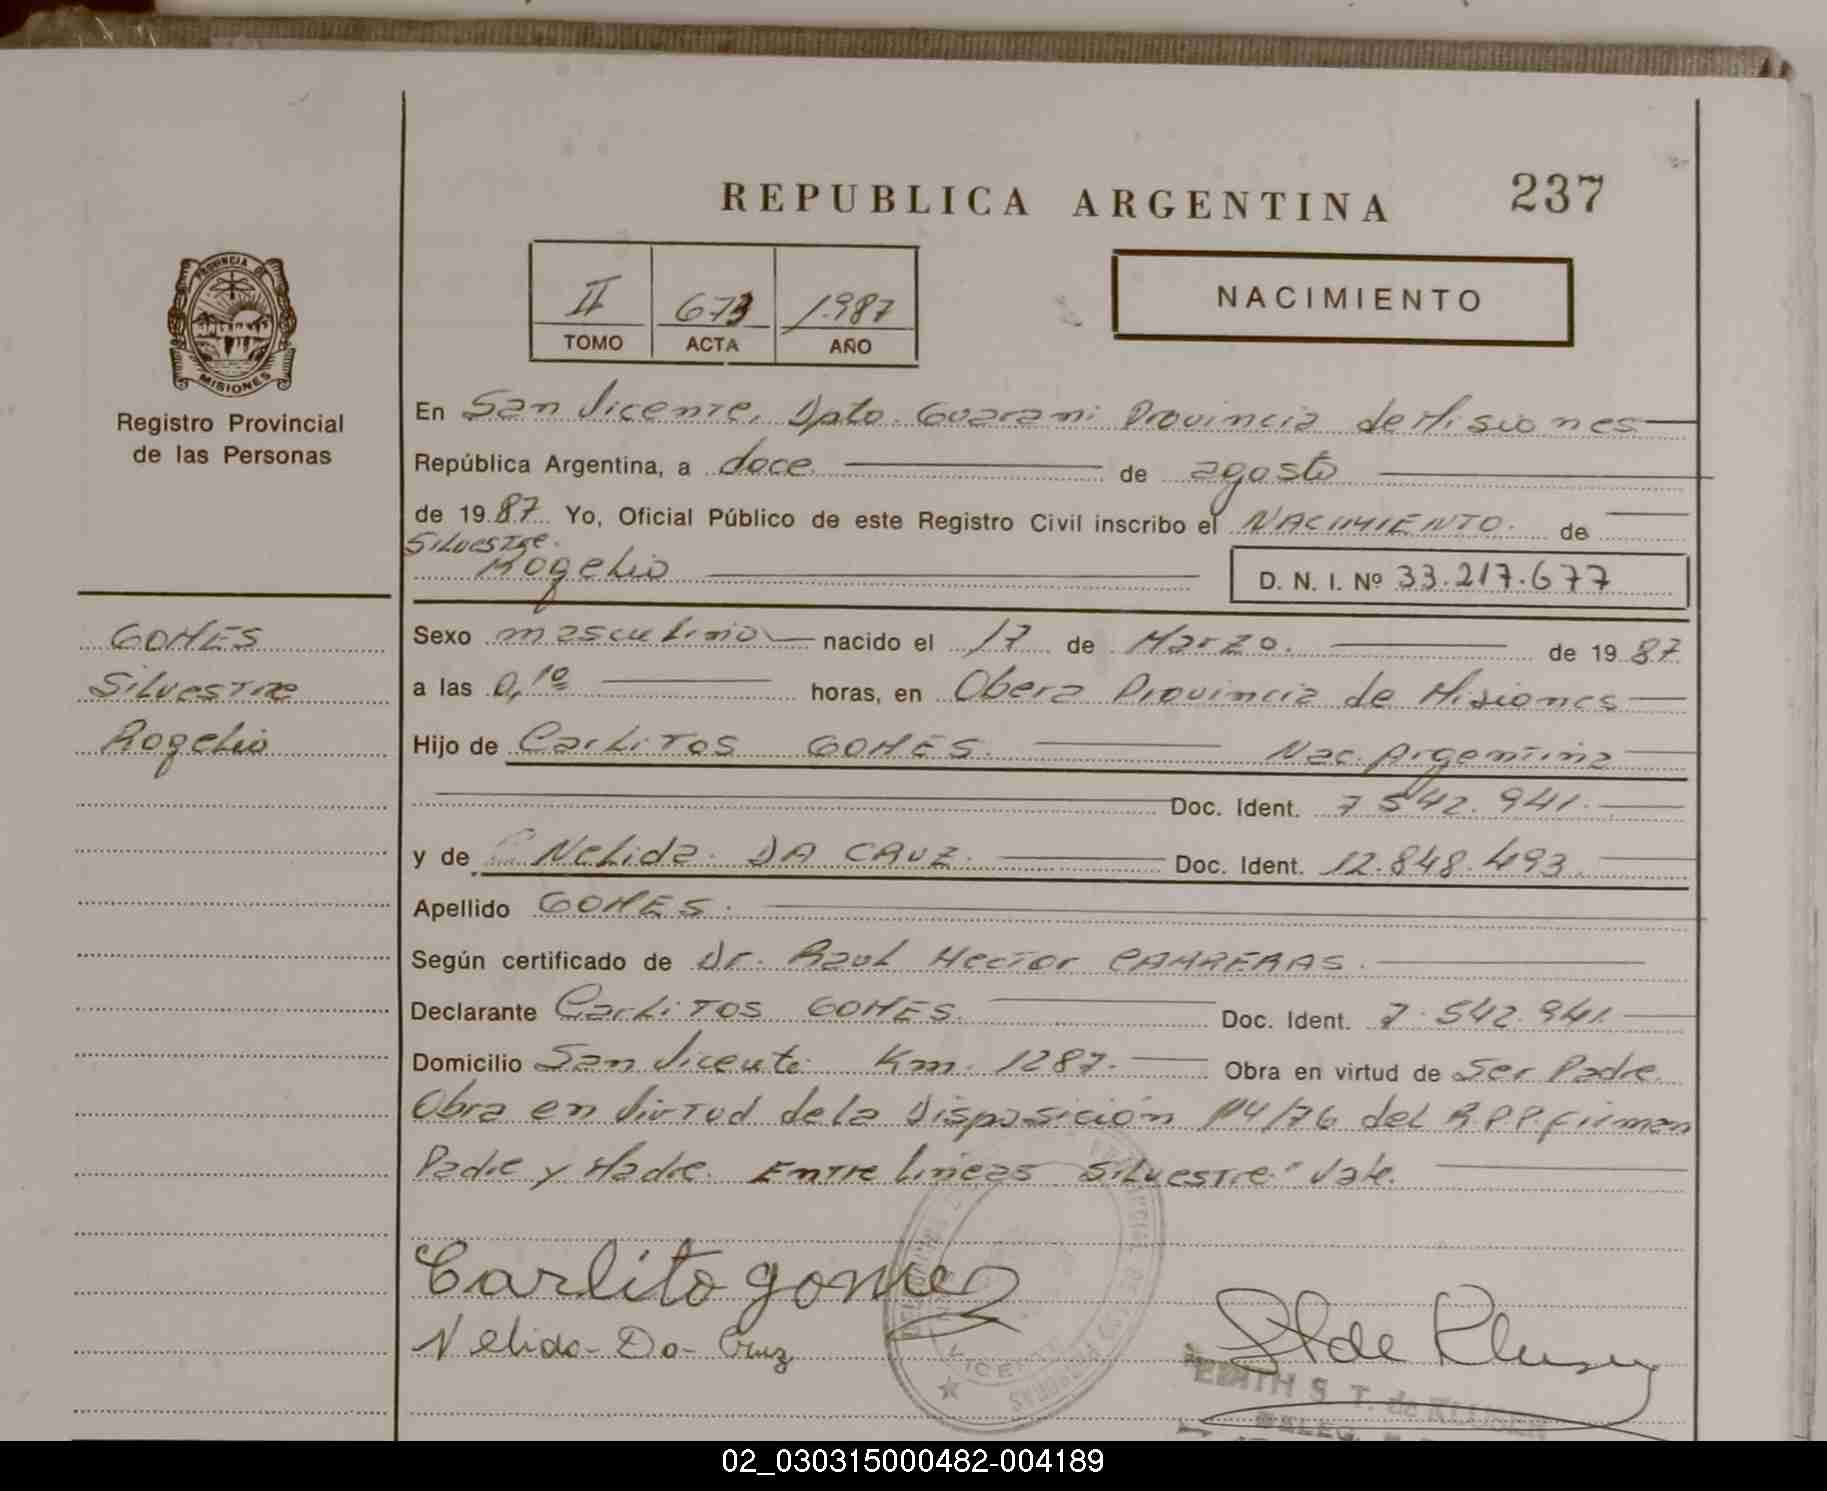 REPUBLICA ARGENTINA
237
PROVINCIA DE
MISIONES
Registro Provincial
de las Personas
II 673 1.987
TOMO ACTA AÑO
NACIMIENTO
En San Vicente, Dpto. Guarani Provincia de Misiones
República Argentina, a doce de agosto
de 1987. Yo, Oficial Público de este Registro Civil inscribo el NACIMIENTO. de
Silvestre.
Rogelio D. N. I. Nº 33.217.677
GOMES
Silvestre
Rogelio
Sexo masculino nacido el 17 de Marzo. de 1987
a las 0,10 horas, en Obera Provincia de Misiones
Hijo de Carlitos GOMES. Nac. Argentina
Doc. Ident. 7.542.941.
y de Nelida DA CRUZ. Doc. Ident. 12.848.493.
Apellido GOMES.
Según certificado de Dr. Raul Hector CARRERAS.
Declarante Carlitos GOMES. Doc. Ident. 7.542.941
Domicilio San Vicente Km. 1287. Obra en virtud de Ser Padre.
Obra en Virtud de la Disposición 114/76 del R.P.P. firman
Padre y Madre. Entre lineas Silvestre" Vale.
Carlito gomez
Nelida-Da-Cruz
EDITH S. T. de KLUSENER
DELEG.
02_030315000482-004189